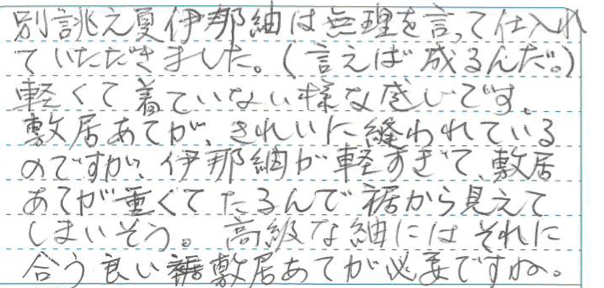 別誂え夏伊那紬は無理を言って仕入れ
ていただきました。(言えば成るんだ。)
軽くて着ていない様な感じです。
敷居あてが、きれいに縫われている
のですが、伊那紬が軽すぎて、敷居
あてが重くてたるんで裾から見えて
しまいそう。高級な紬にはそれに
合う良い裾敷居あてが必要ですね。